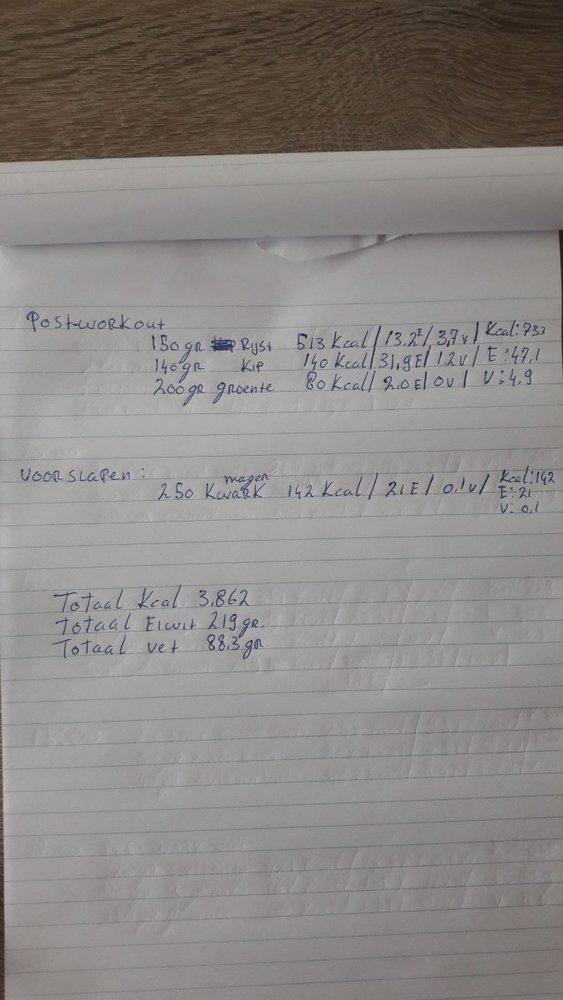 Post-workout
150gr Rijst 513 Kcal / 13.2E / 3,7v / Kcal: 733
140gr Kip 140 Kcal / 31,9E / 1.2v / E: 47,1
200gr groente 80 Kcal / 2.0E / 0v / V: 4.9
voor slapen:
250 magere Kwark 142 Kcal / 21E / 0.1v / Kcal: 142
E: 21
V: 0,1
Totaal Kcal 3.862
Totaal Eiwit 219gr.
Totaal vet 88.3gr